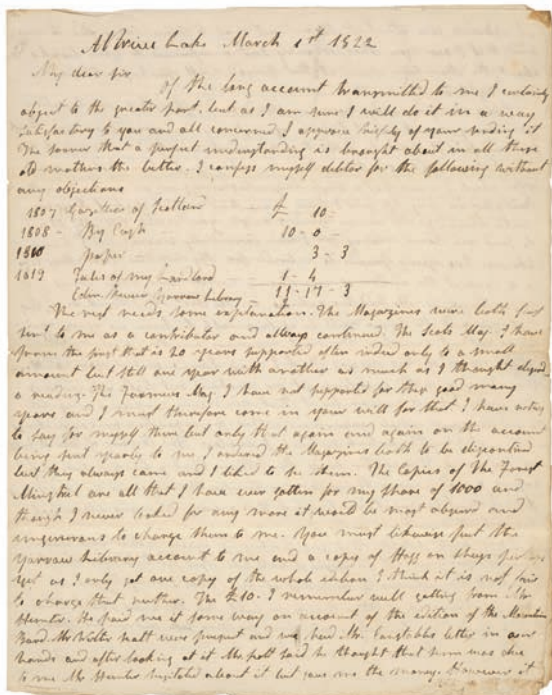 Altrive Lake March 1st 1822
My dear sir
Of the long account transmitted to me I certainly
object to the greater part, but as I am sure I will do it in a way
satisfactory to you and all concerned I approve highly of your sending it
The sooner that a perfect understanding is brought about in all these
old matters the better. I confess myself debtor for the following without
any objections
1807 Gazetteer of Scotland £ 10
1808 - By Cash 10 - 0 -
1810 paper 3 - 3
1819 Tales of my Landlord 1 - 4
Edin Review Yarrow Library 11 - 17 - 3
The rest needs some explanation. The Magazines were both first
sent to me as a contributor and always continued. The Scots Mag. I have
from the first that is 20 years supported often indeed only to a small
amount but still one year with another as much as I thought
a reading. The Farmers Mag. I have not supported for these good many
years and I must therefore come in your will for that. I have nothing
to say for myself there but only that again and again on the account
being sent yearly to me I ordered the Magazines both to be discontinued
but they always came and I liked to see them. The Copies of The Forest
Minstrel are all that I have ever gotten for my share of 1000 and
though I never looked for any more it would be most absurd and
ungenerous to charge them to me. You must likewise put the
Yarrow Library account to me and a copy of Hogg on sheep perhaps
yet as I only got one copy of the whole edition I think it is not fair
to charge that neither. The £10 - I remember well getting from Mr
Hunter. He paid me it some way on account of the edition of the Mountain
Bard. Mr Walter Scott were present and we had Mr. Constables letter in our
hands and after looking at it Mr Scott said he thought that sum was due
to me Mr Hunter hesitated about it but gave me the money. However it